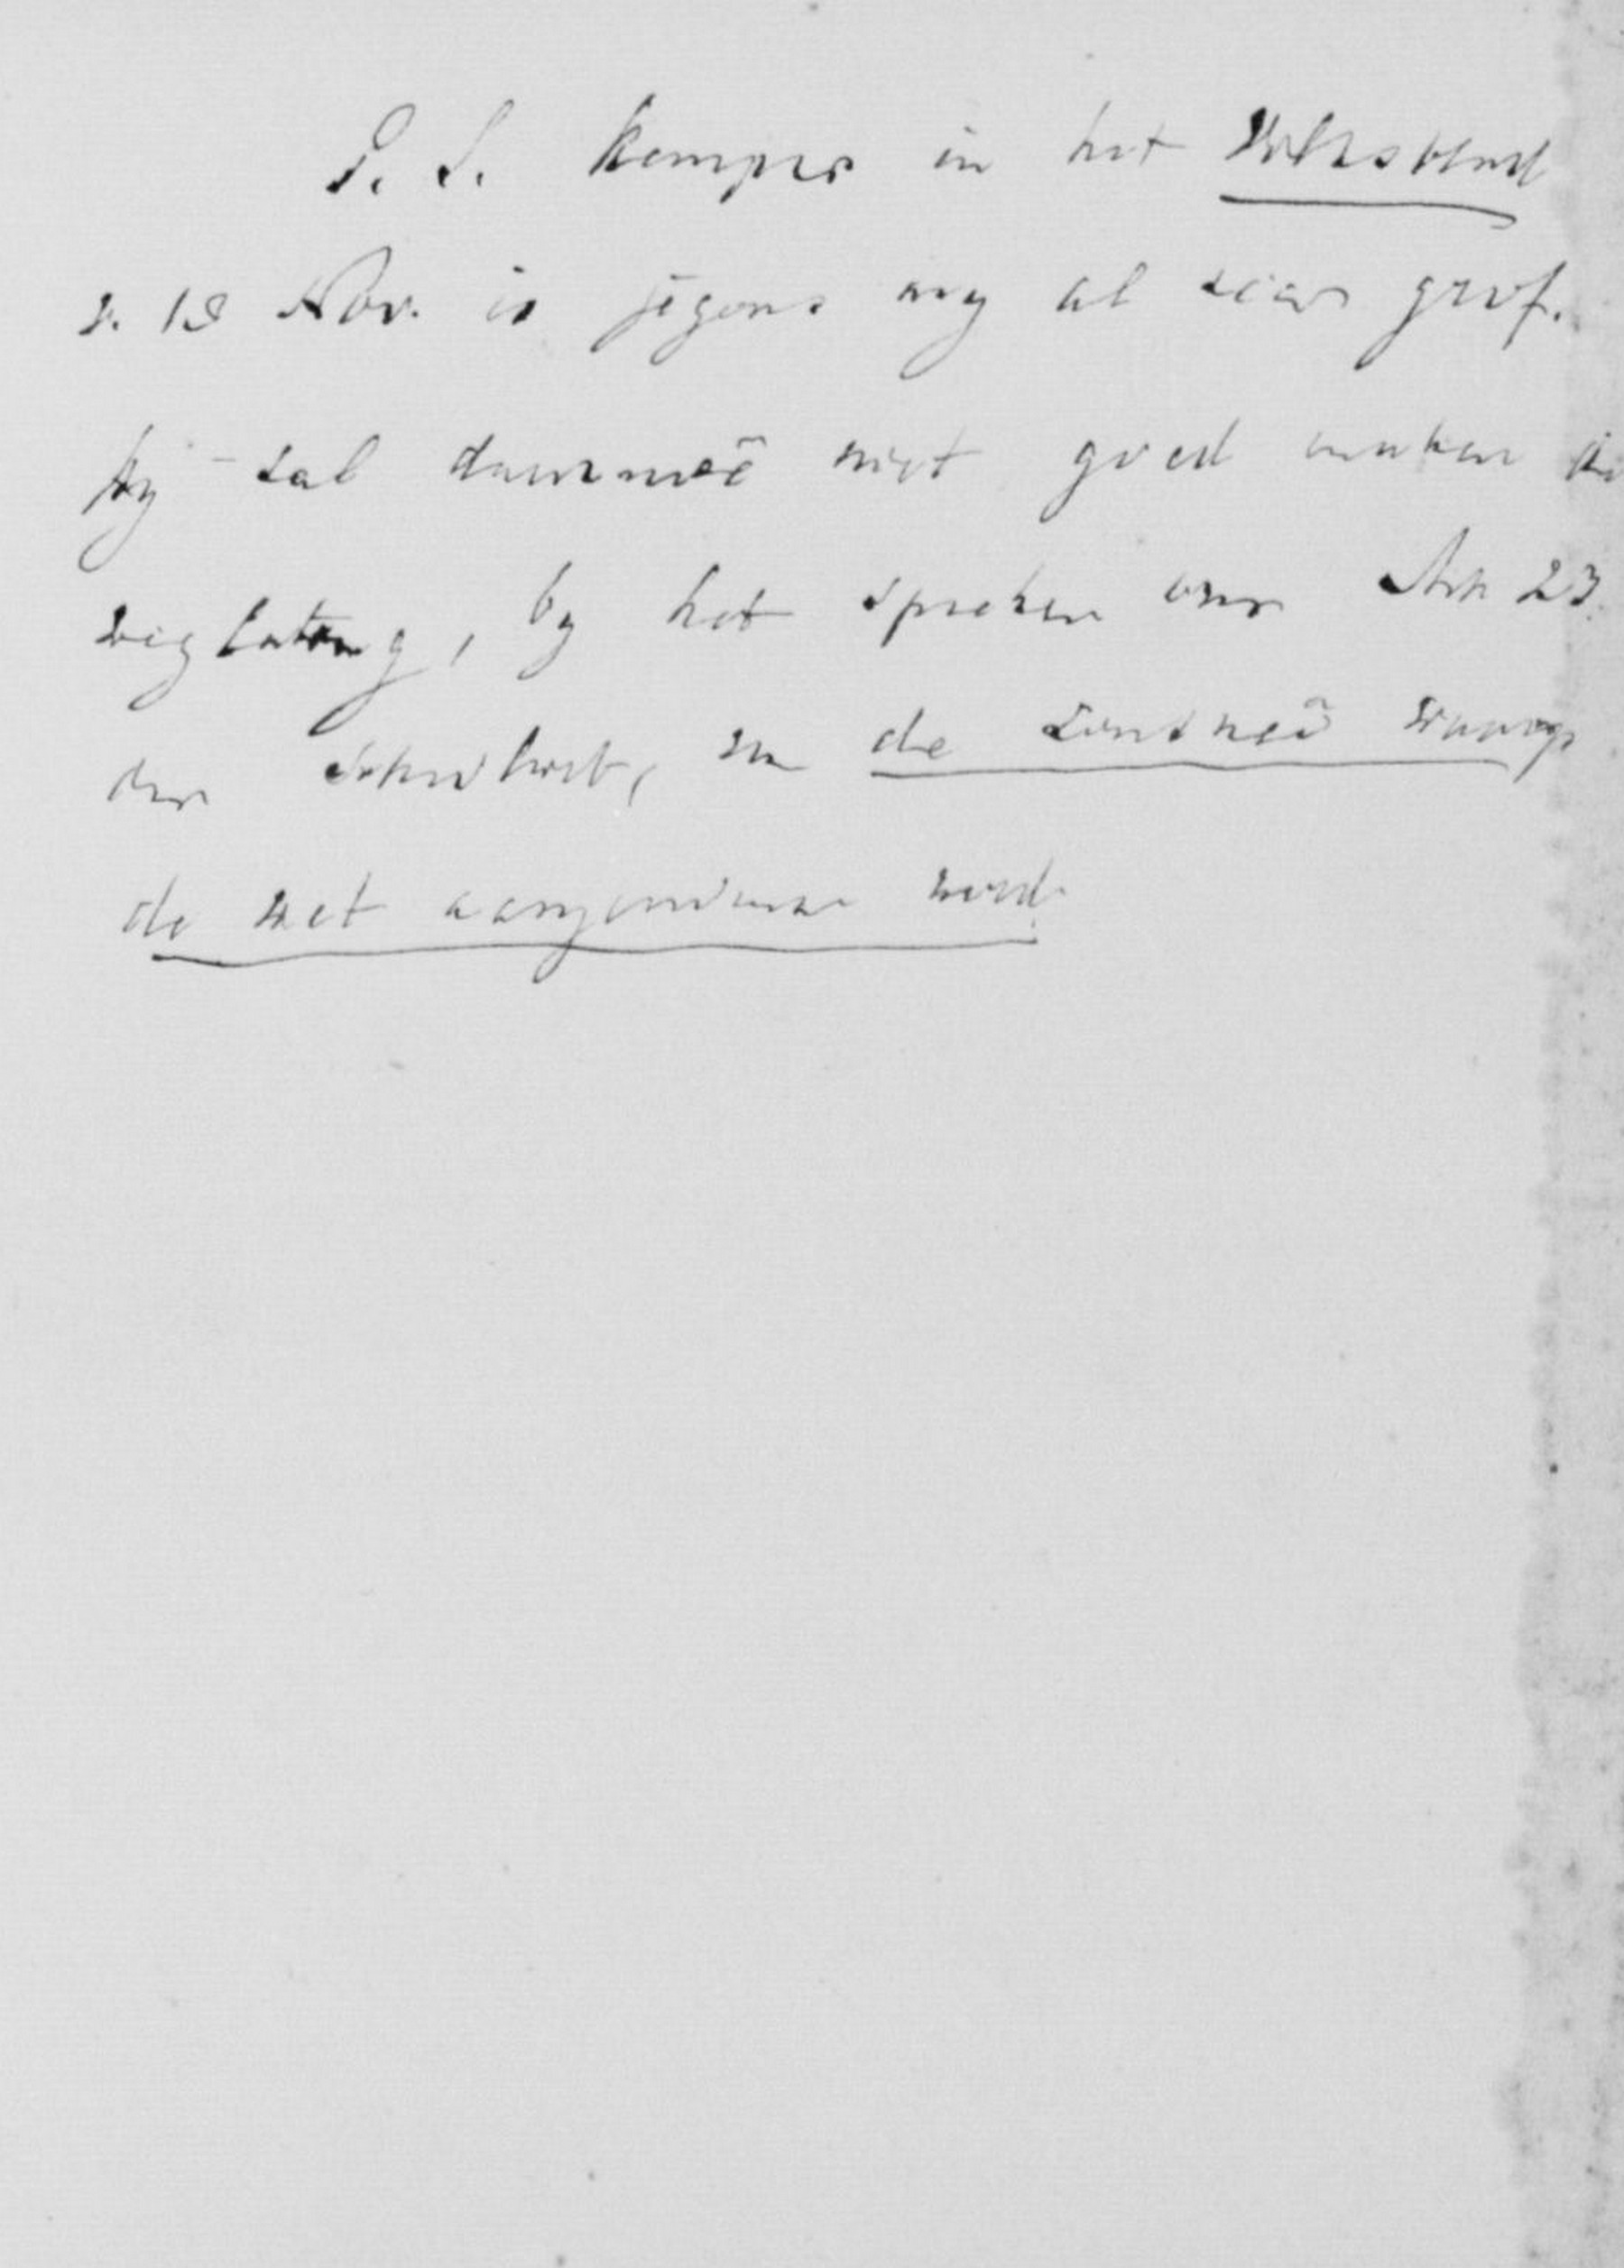 P. S. Kemper in het Volksblad
v. 18 Nov. is jegens my al zeer grof.
hy zal daarmeê niet goed maken de
weglating, by het spreken over Art. 23
der Schoolwet, en de conditie waarop
de wet aangenomen werd.